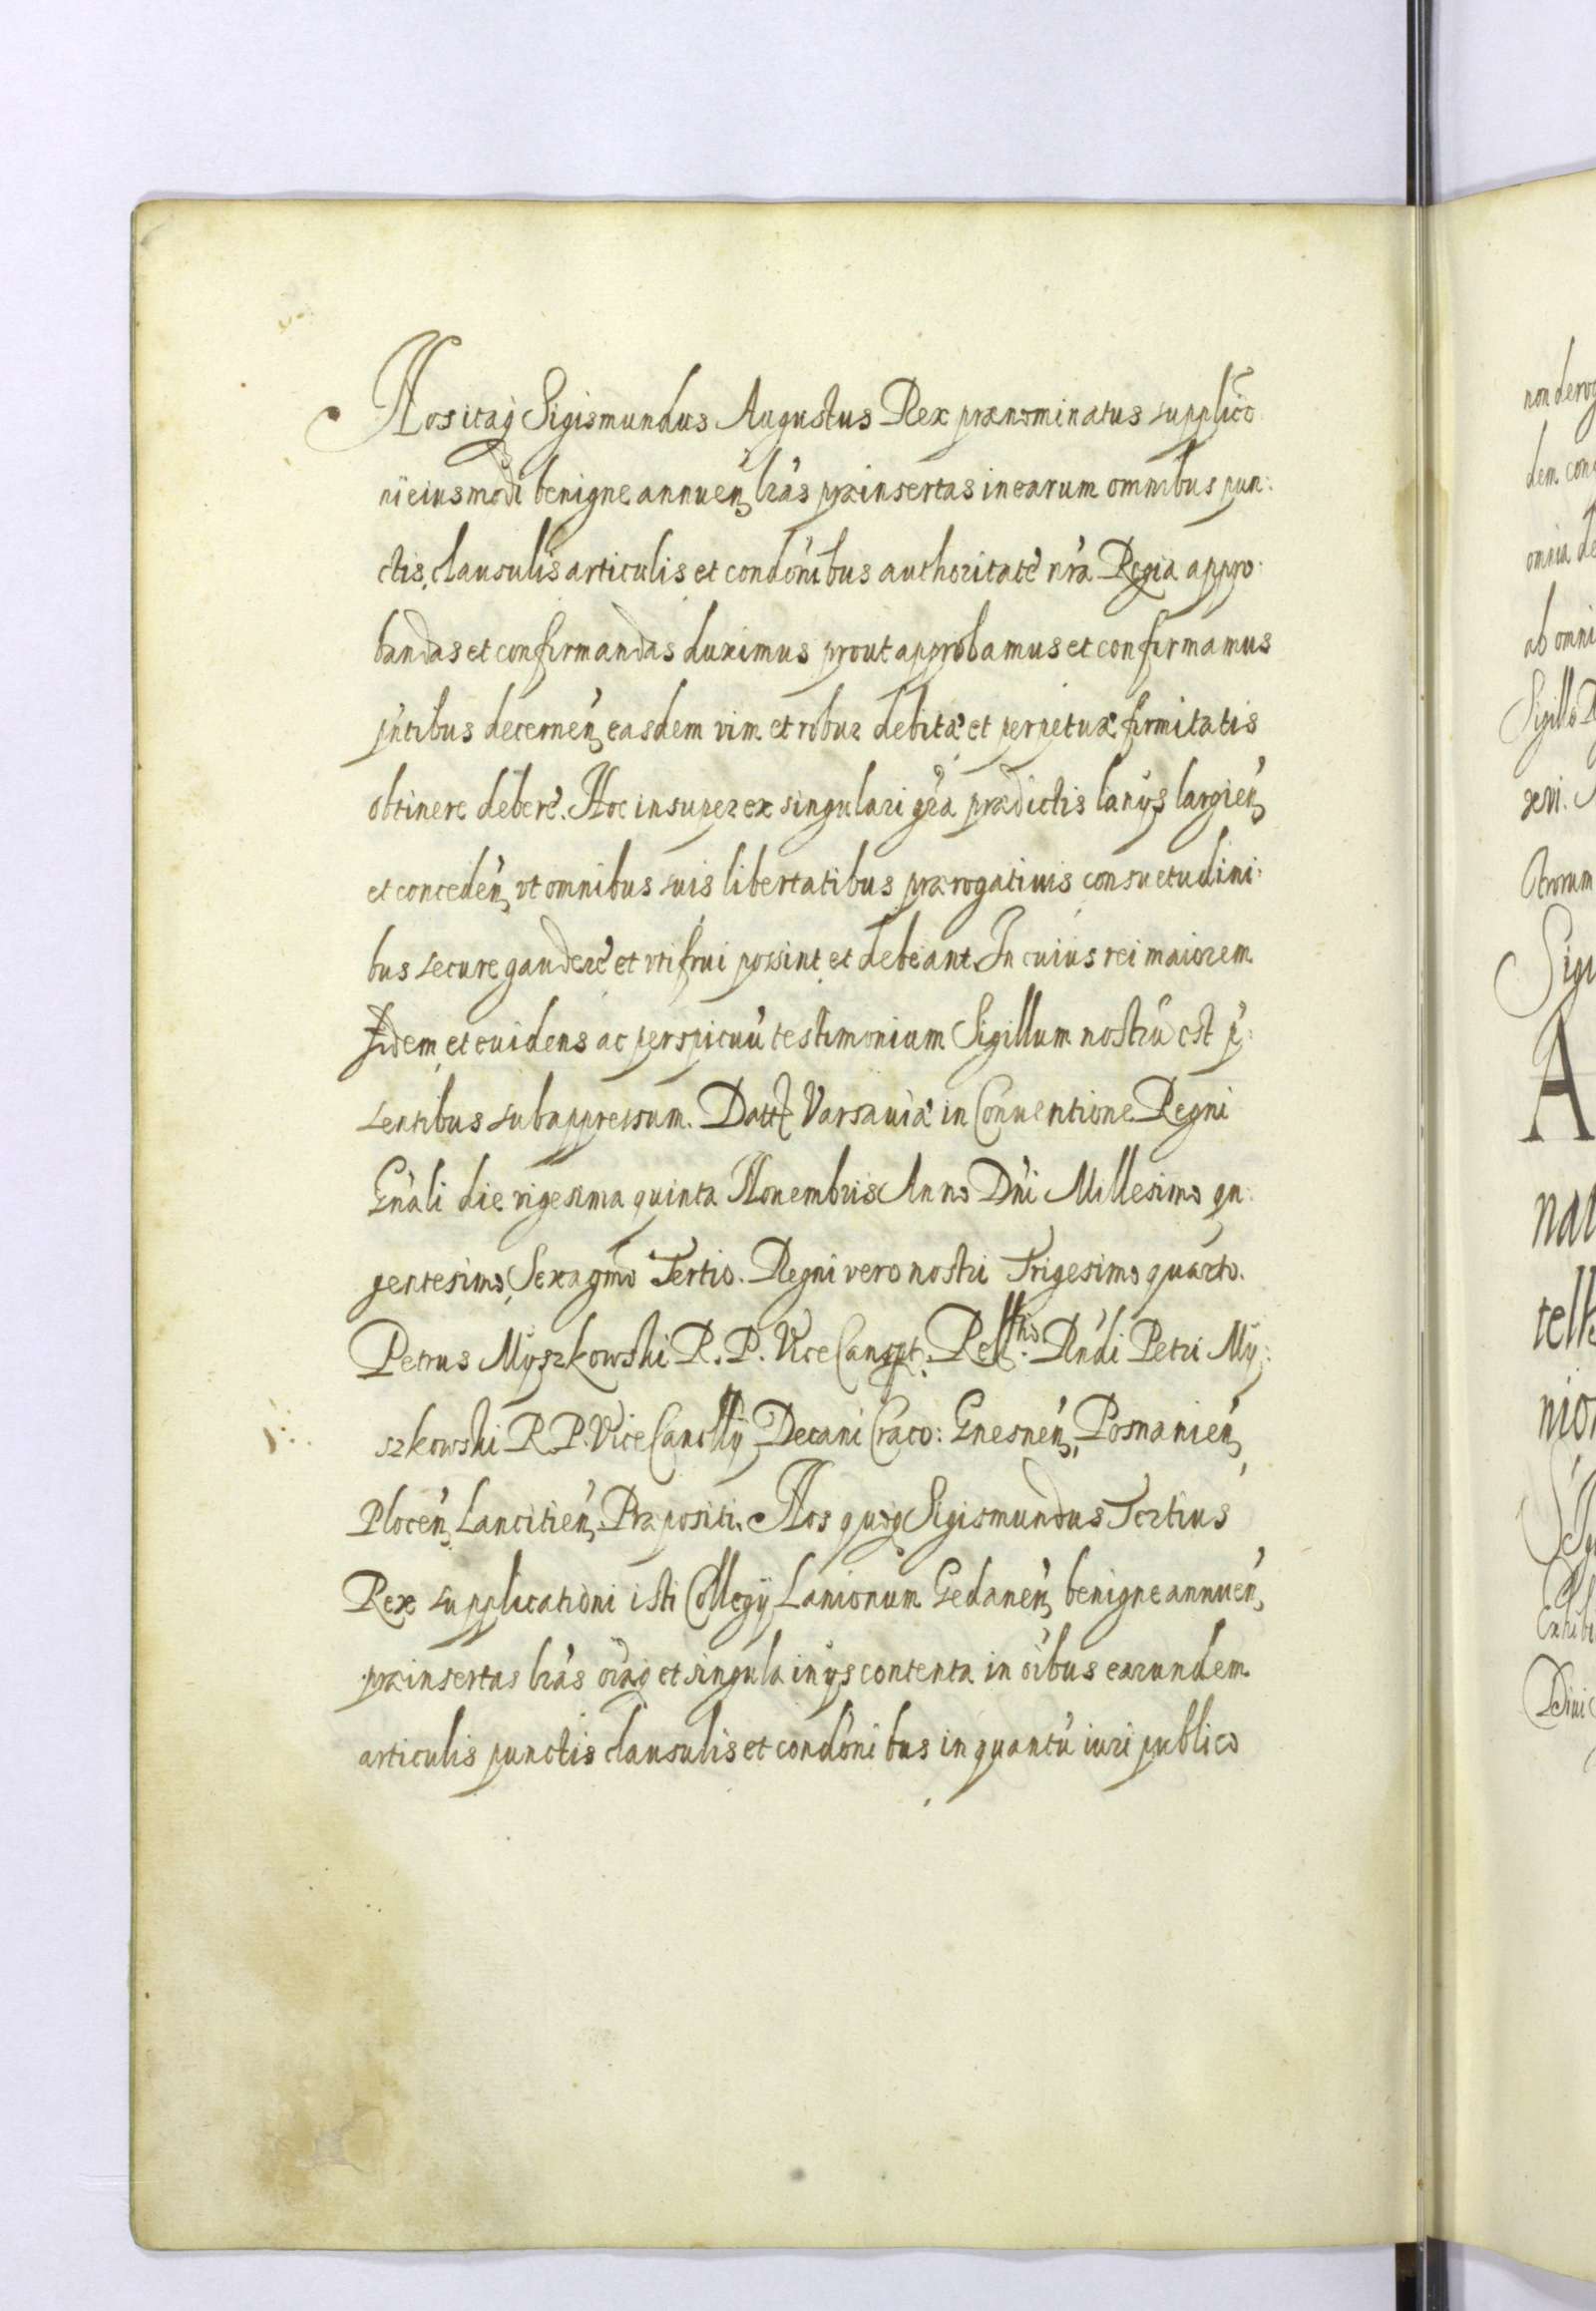 Nos itaq Sigismundus Augustus Rex prænominatus supplico
ni eiusmodi benigne annuen lras præinsertas in earum omnibus pun:
ctis, clausulis articulis et condonibus authoritate nra Regia appro:
bandas et confirmandas duximus prout approbamus et confirmamus
pntibus decernen easdem vim et robur debitæ et perpetuæ firmitatis
obtinere debere. Hoc insuper ex singulari gra prædictis lanijs largien
et conceden vt omnibus suis libertatibus prærogatiuis consuetudini:
bus secure gaudere et vti frui possint et debeant. In cuius rei maiorem
fidem et euidens ac perspicuu testimonium Sigillum nostru est p:
sentibus subappressum. Datt Varsauiæ in Conuentione Regni
Gnali die vigesima quinta Nouembris Anno Dni Millesimo qn:
gentesimo, Sexagmo Tertio. Regni vero nostri Trigesimo quarto.
Petrus Myszkowski R. P. Vice Cancpt. Rellio Rndi Petri My:
szkowski R. P. Vice Cancllij Decani Craco: Gnesnen, Posnanien,
Plocen, Lancitien, Præpositi. Nos quoq Sigismundus Tertius
Rex supplicationi isti Collegij Lanionum Gedanen, benigne annuen,
præinsertas lras oiaq et singula in ijs contenta in oibus earundem
articulis punctis clausulis et condonibus in quantu iuri publico
non derog
dem con
omnia de
ab omni
Sigillo R
xcvi.
Otrorum
Sigi
A
nat
telk
nion
Exhibi
Diui